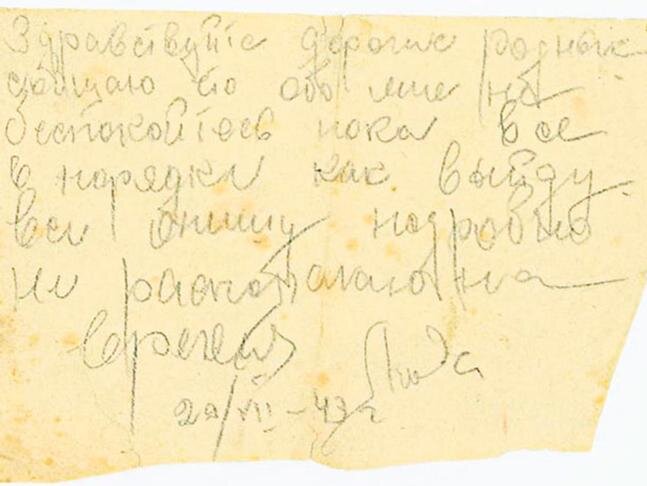 Здравствуйте дорогие родные
сообщаю что обо мне не
беспокойтесь пока все
в порядки как выйду
все опишу подробно
не располагаю
временем Лида
29/VII-43 г